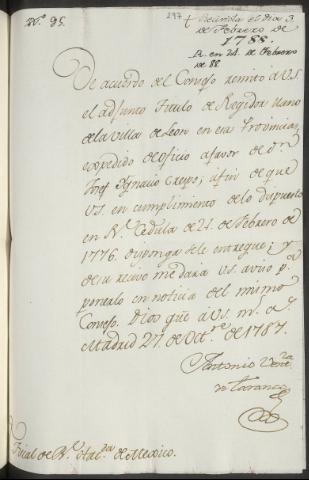 N.º 95.
297
+ Recivida el dia 3
de Febrero de
1788.
R. en 24 de Febrero
de 88
De acuerdo del Consejo remito a V.S.
el adjunto Titulo de Regidor llano
de la Villa de Leon en esa Provincia,
expedido de oficio a favor de d.n
Josef Ygnacio Crespo; a fin de que
V.S. en cumplimiento de lo dispuesto
en R.l Cedula de 21. de Febrero de
1776. disponga se le entregue; y
de su recivo me dará V.S. aviso p.a
ponerlo en noticia del mismo
Consejo. Dios gue a V.S. m.s a.s
Madrid 27. de Oct.re de 1787.
Antonio Vent.ra
de Taranco
Fiscal de R.l Haz.da de Mexico.